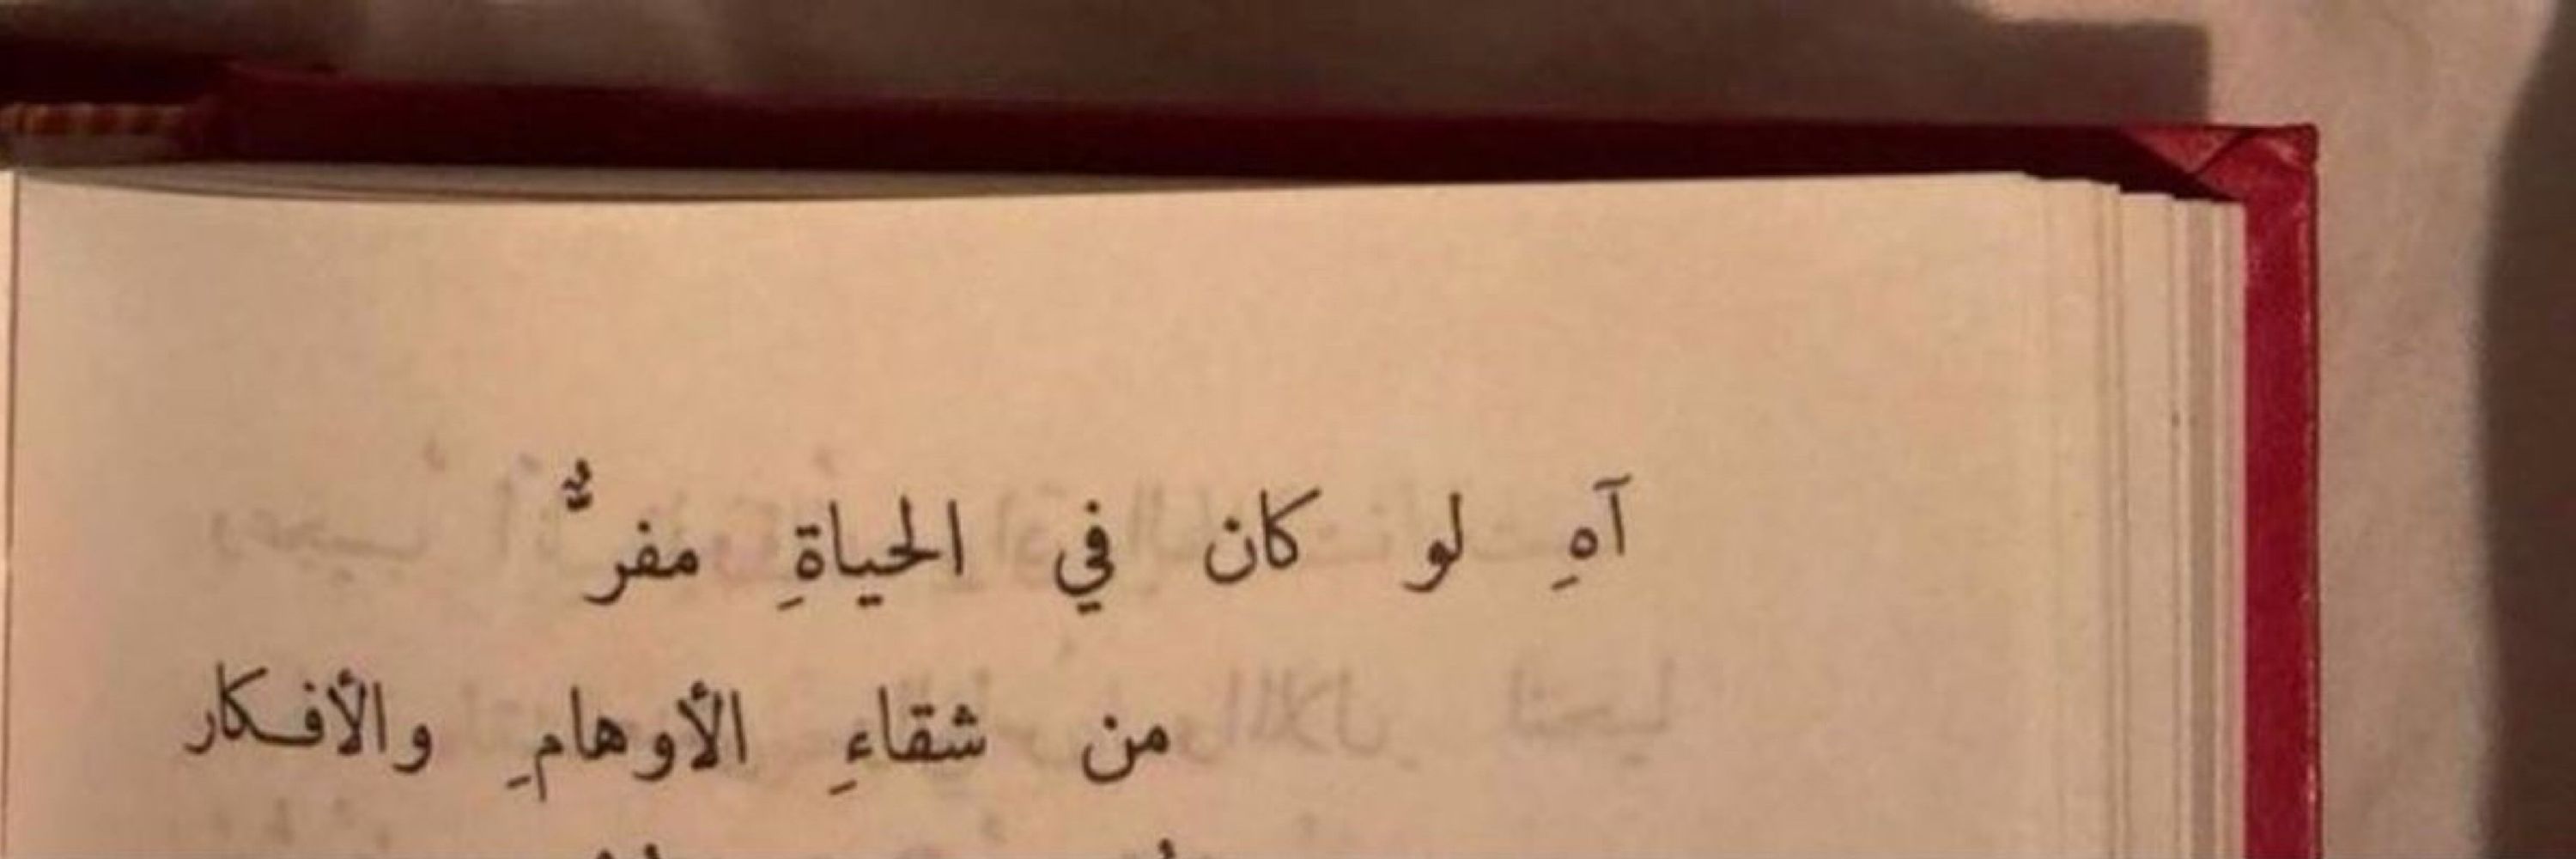 آهِ لو كان في الحياةِ مفرٌّ
من شقاءِ الأوهامِ والأفكار